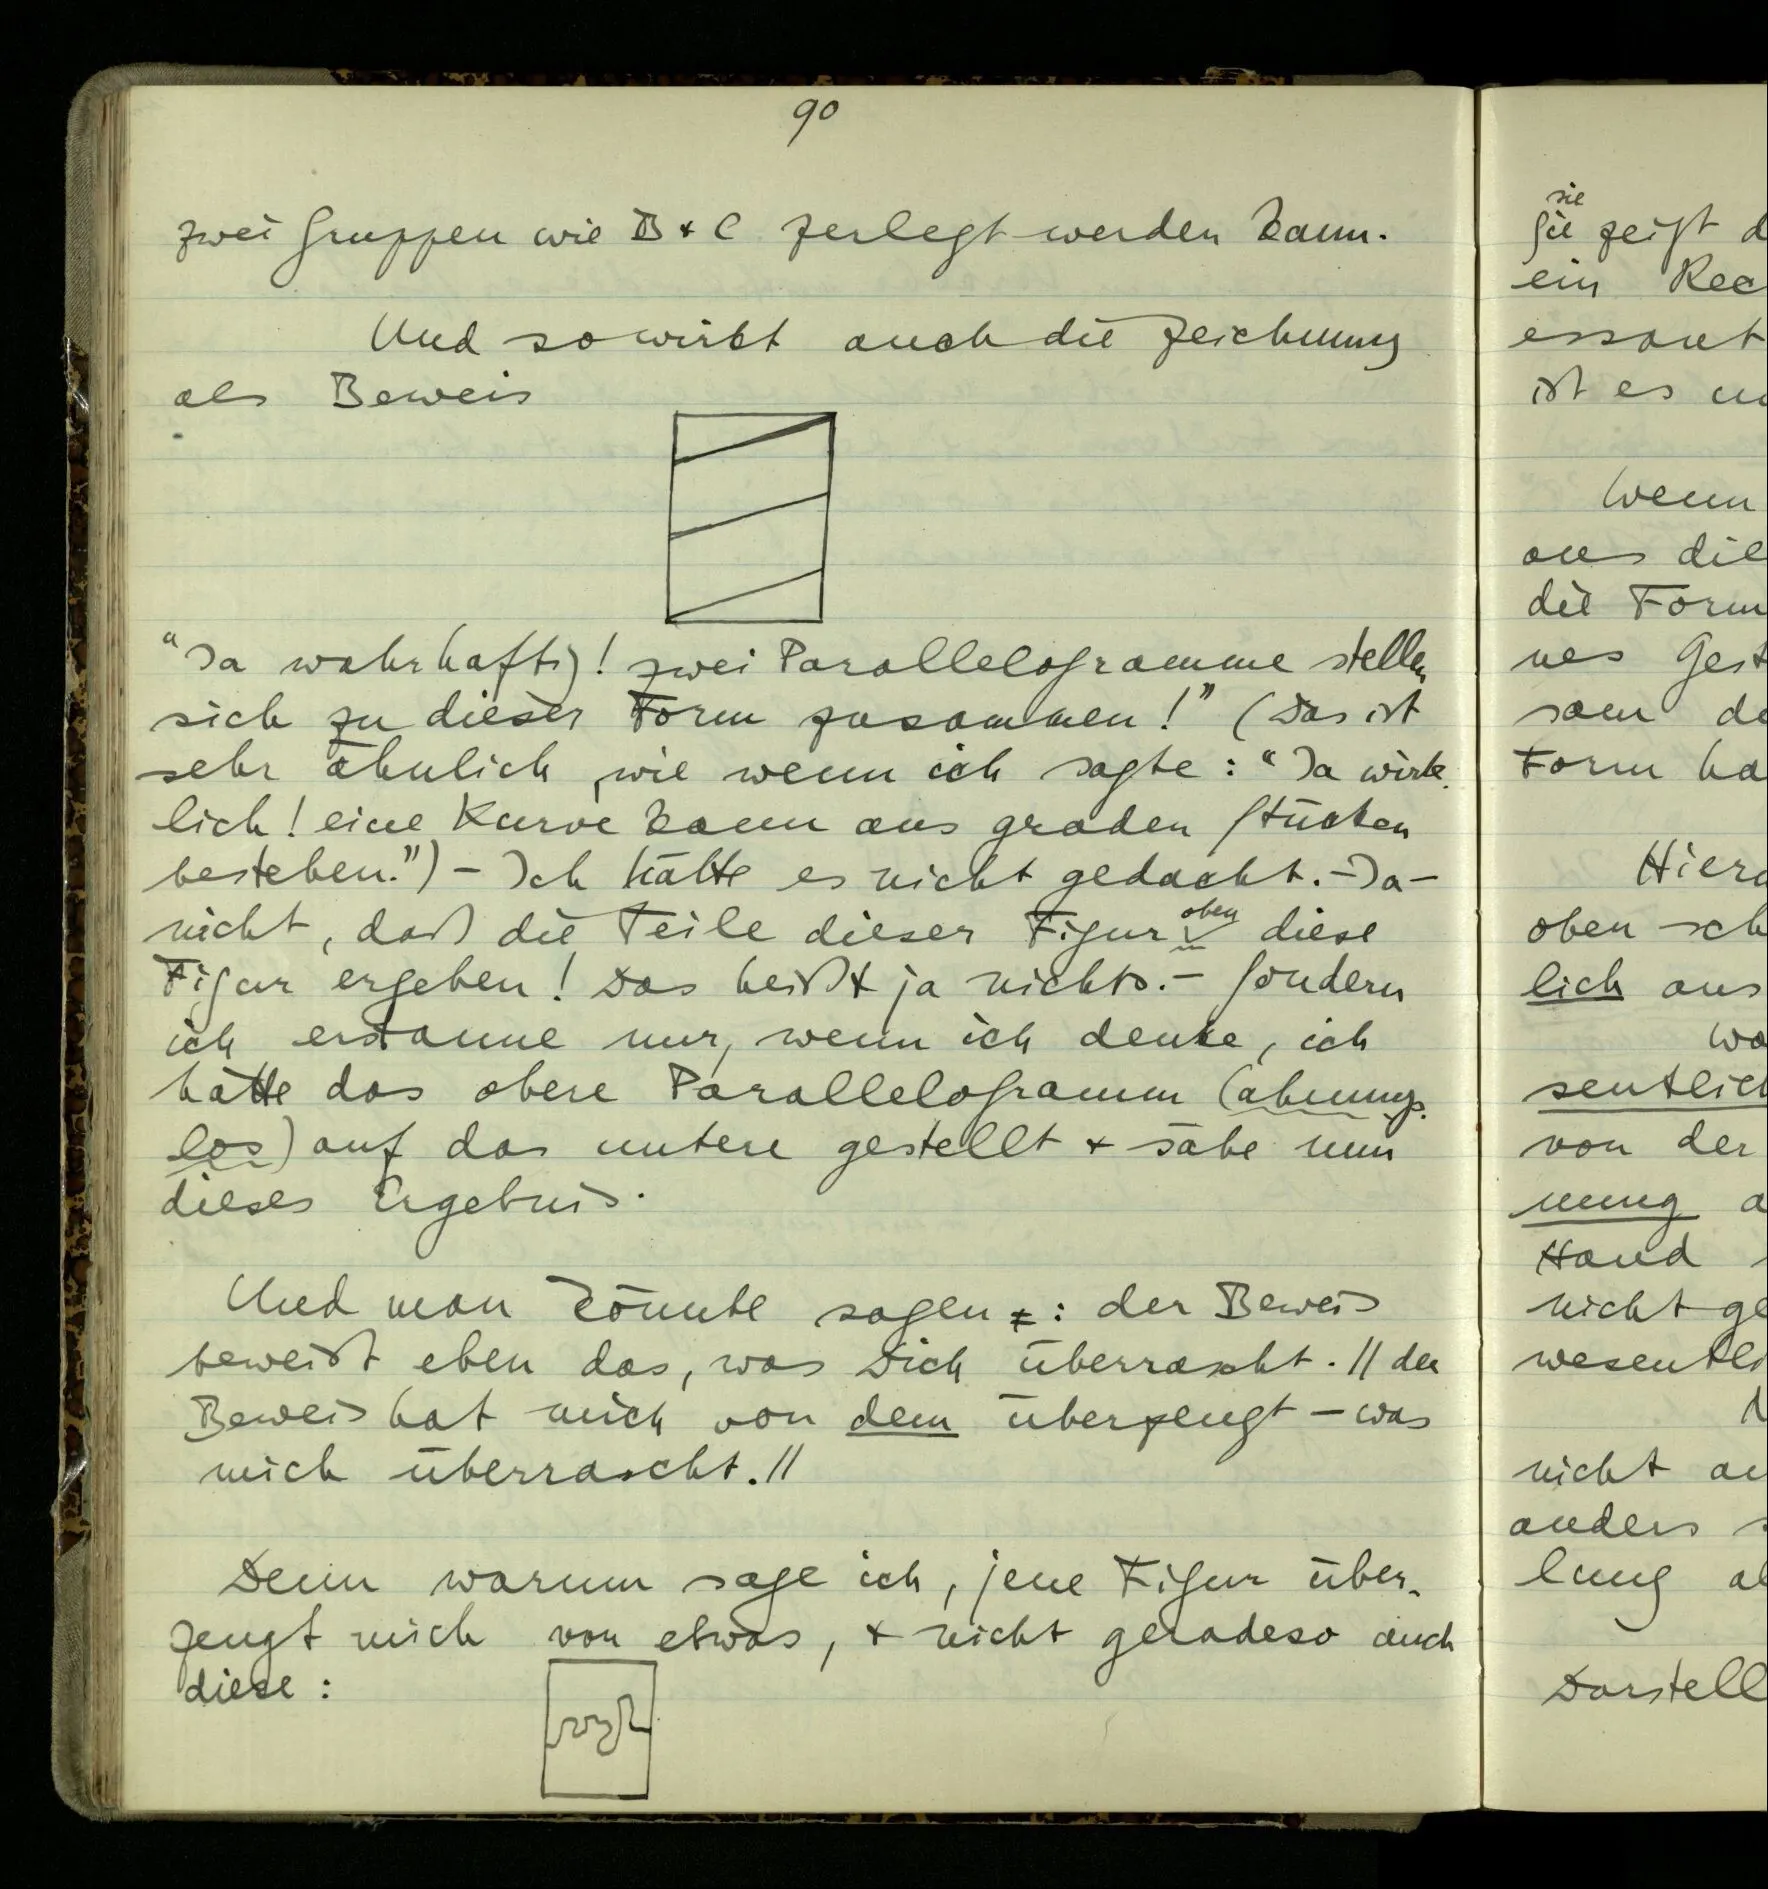 90
zwei Gruppen wie B & C zerlegt werden kann.
Und so wirkt auch die Zeichnung
als Beweis
"Ja wahrhaftig! zwei Parallelogramme stellen
sich zu dieser Form zusammen!" (Das ist
sehr ähnlich, wie wenn ich sagte: "Ja wirk-
lich! eine Kurve kann aus graden Stücken
bestehen.") – Ich hätte es nicht gedacht. – Ja –
nicht, daß die Teile dieser Figur eben diese
Figur ergeben! Das heißt ja nichts. – Sondern
ich erstaune nur, wenn ich denke, ich
hätte das obere Parallelogramm (ahnungs-
los) auf das untere gestellt & sähe nun
dieses Ergebnis.
Und man könnte sagen: der Beweis
beweist eben das, was Dich überrascht. // der
Beweis hat mich von dem überzeugt – was
mich überrascht. //
Denn warum sage ich, jene Figur über-
zeugt mich von etwas, & nicht geradeso auch
diese:
sie
Sie zeigt d
ein Rec
essant
ist es
Wenn
aus die
die Form
nes Gest
sam de
Form ha
Hiera
oben sch
lich aus
wa
sentlich
von der
nung a
Hand
nicht ge
wesentli
nicht au
anders s
lung al
Darstell